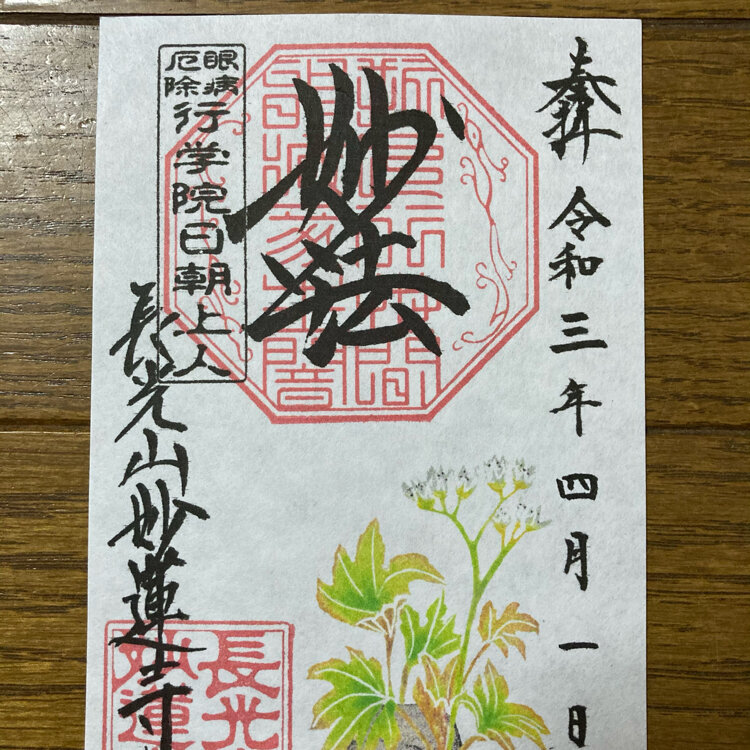 奉拝
令和三年四月一日
妙法
眼病
厄除
行学院日朝上人
長光山妙蓮寺
長光
妙蓮